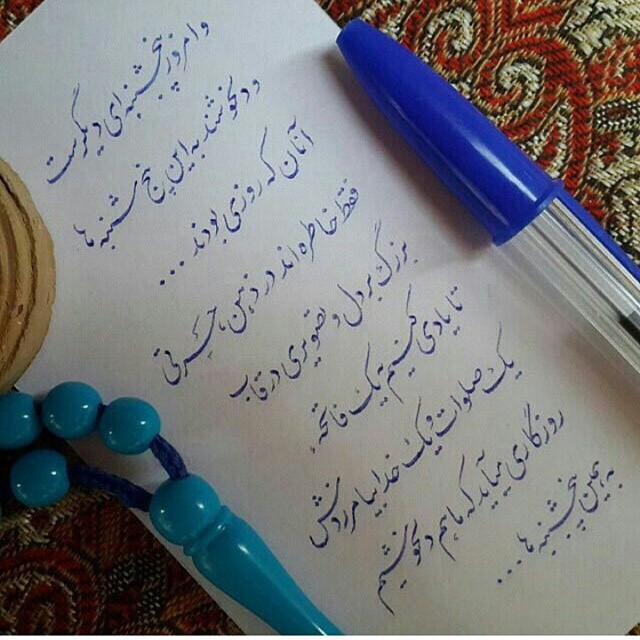 و امروز پنجشنبه‌ای دیگرست
و دلخوشند به این پنج شنبه ها
آنان که روزی بودند...
فقط خاطره اند در ذهن، حسرتی
بزرگ بر دل و تصویری در قاب
تا یادی کنیم به یک فاتحه،
یک صلوات و یک خدا بیامرزدش
روزگاری میآید که ما هم دلخوشیم
به همین پنجشنبه ها...